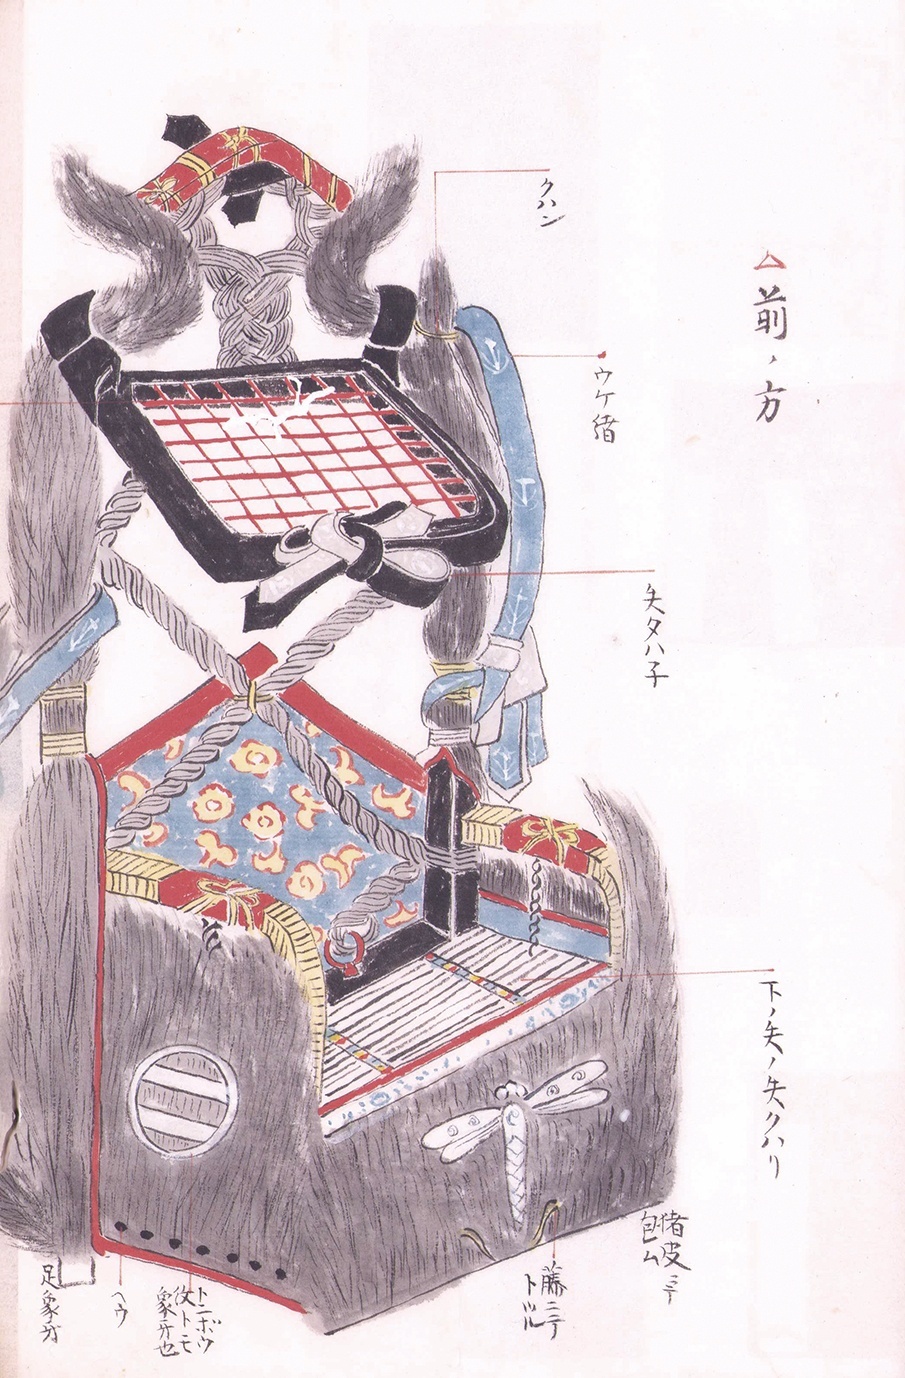 △前ノ方
クハン
ウケ緒
矢タハ子
下ノ矢ノ矢クハリ
猪皮ニテ
包ム
藤ニテ
トヅル
トンボウ
紋トモ
象牙也
ヘウ
足象牙